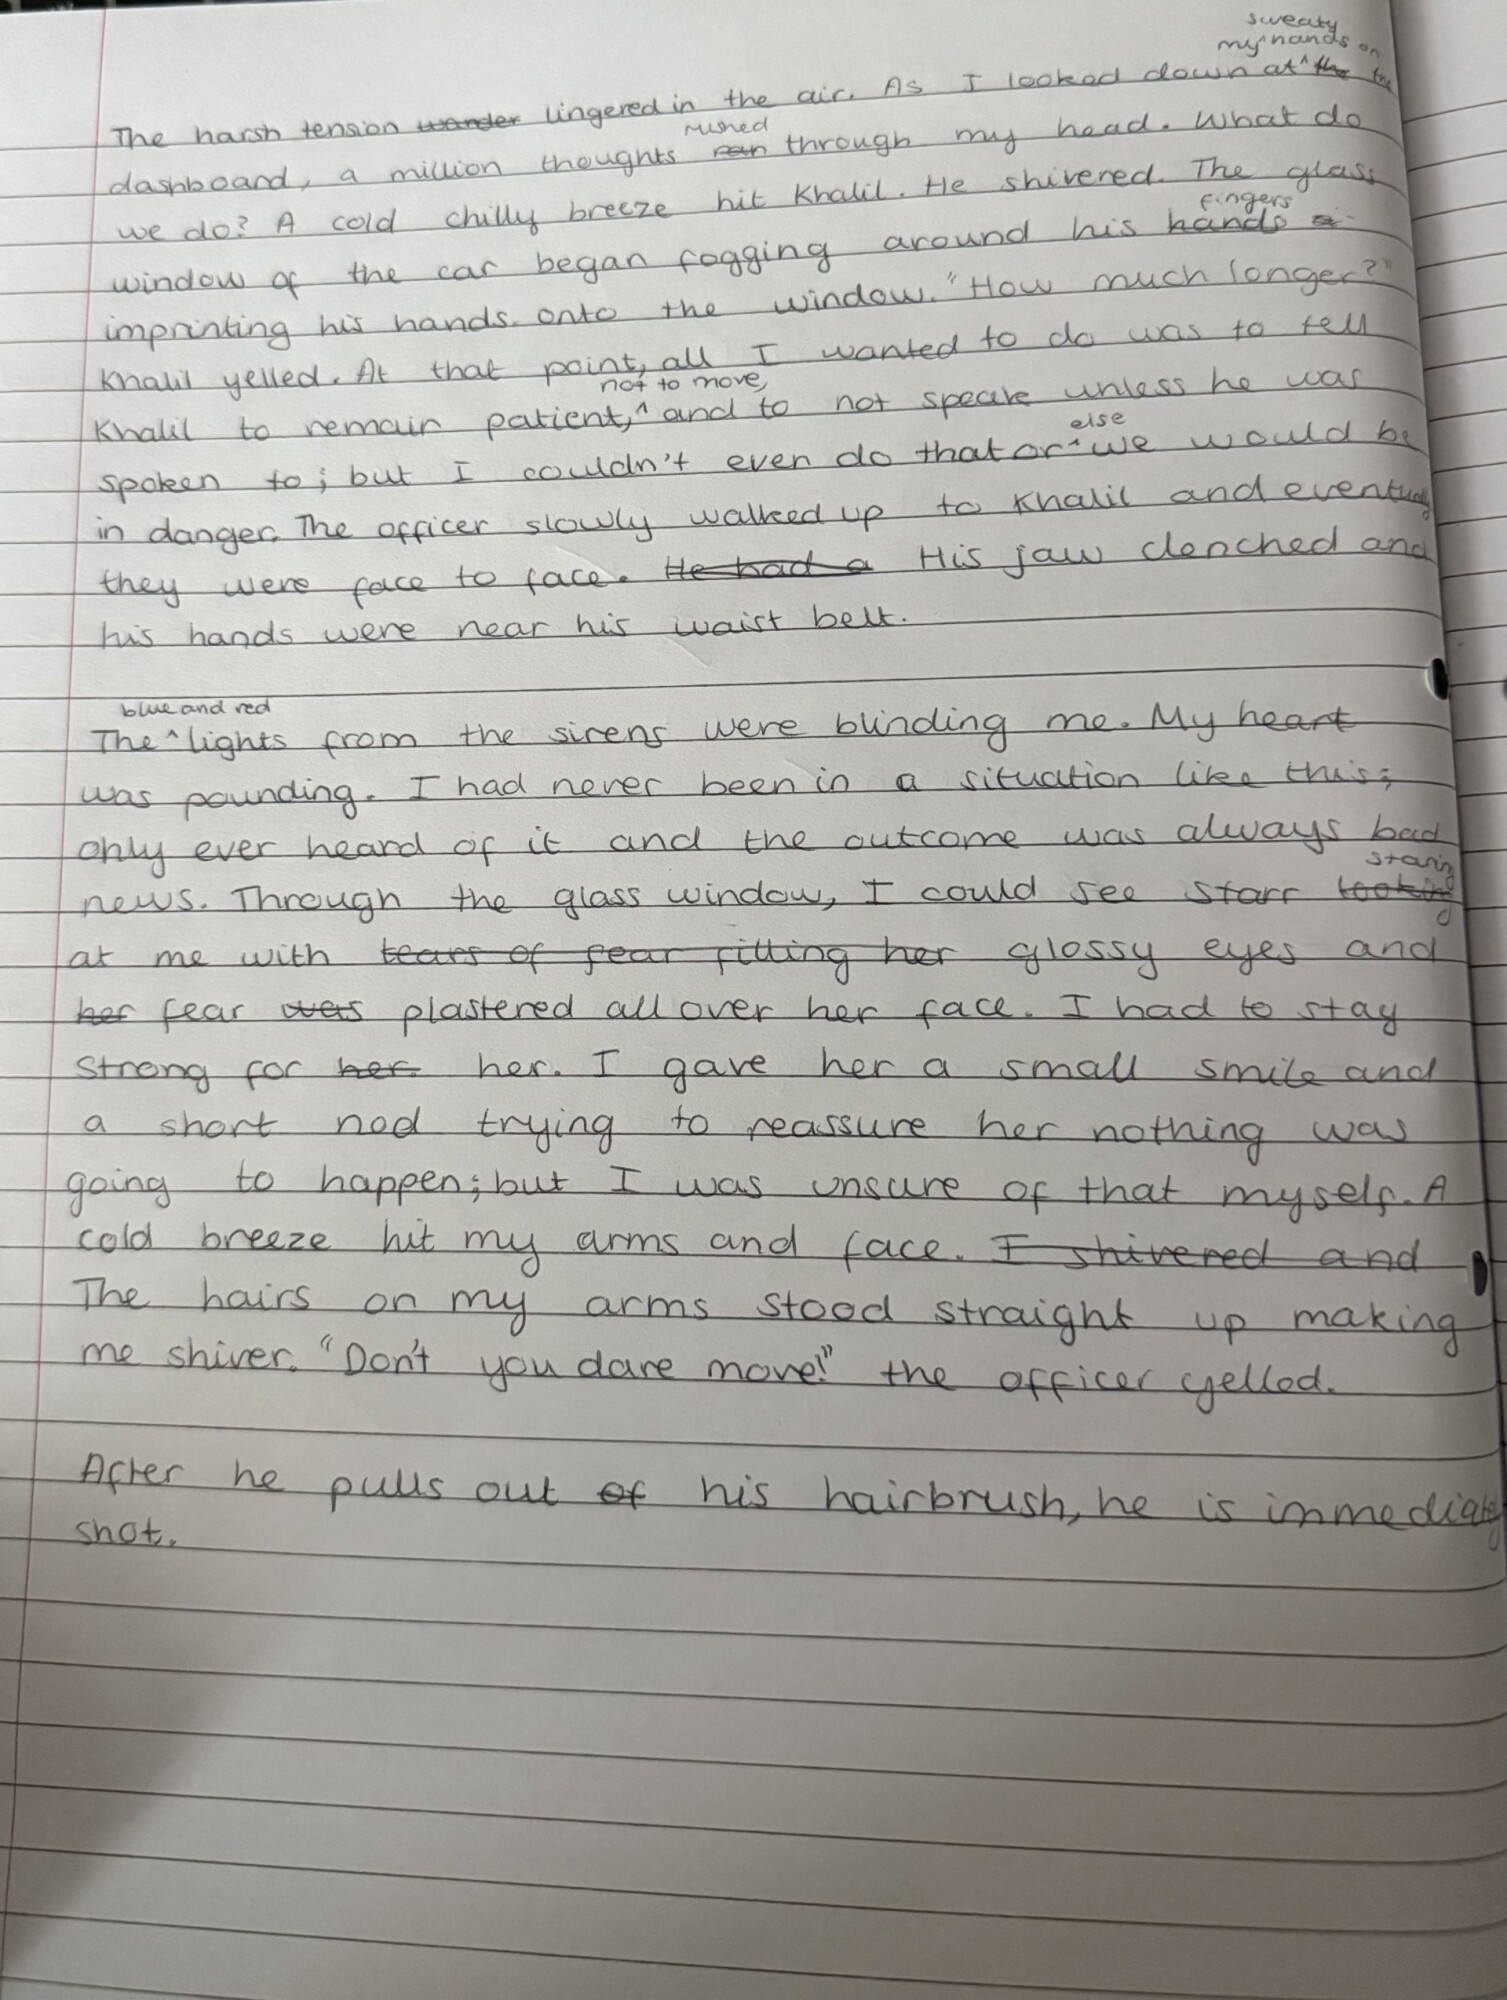 sweaty
my^hands on
The harsh tension wander lingered in the air. As I looked down at^the the
rushed
dashboard, a million thoughts ran through my head. What do
we do? A cold chilly breeze hit Khalil. He shivered. The glass
fingers
window of the car began fogging around his hands a
imprinting his hands. onto the window. "How much longer?"
Khalil yelled. At that point, all I wanted to do was to tell
not to move,
Khalil to remain patient,^ and to not speak unless he was
else
spoken to; but I couldn't even do that or^we would be
in danger. The officer slowly walked up to Khalil and eventually
they were face to face. He had a His jaw clenched and
his hands were near his waist belt.
blue and red
The^lights from the sirens were blinding me. My heart
was pounding. I had never been in a situation like this;
only ever heard of it and the outcome was always bad
staring
news. Through the glass window, I could see Starr looking
at me with tears of fear filling her glossy eyes and
her fear was plastered all over her face. I had to stay
strong for her. her. I gave her a small smile and
a short nod trying to reassure her nothing was
going to happen; but I was unsure of that myself. A
cold breeze hit my arms and face. I shivered and
The hairs on my arms stood straight up making
me shiver. "Don't you dare move!" the officer yelled.
After he pulls out of his hairbrush, he is immediately
shot.